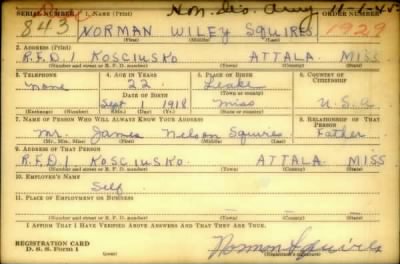 SERIAL NUMBER 1. NAME (Print) Hon. Dis. Army 11-6-45 ORDER NUMBER
843 NORMAN WILEY SQUIRES 1929
(First) (Middle) (Last)
2. ADDRESS (Print)
R.F.D.1 KOSCIUSKO ATTALA MISS
(Number and street or R. F. D. number) (Town) (County) (State)
3. TELEPHONE 4. AGE IN YEARS 5. PLACE OF BIRTH 6. COUNTRY OF CITIZENSHIP
None 22 Leake
DATE OF BIRTH (Town or county)
Sept 1 1918 Miss U.S.A
(Exchange) (Number) (Mo.) (Day) (Yr.) (State or country)
7. NAME OF PERSON WHO WILL ALWAYS KNOW YOUR ADDRESS 8. RELATIONSHIP OF THAT PERSON
Mr. James Nelson Squires Father
(Mr., Mrs., Miss) (First) (Middle) (Last)
9. ADDRESS OF THAT PERSON
R.F.D.1 KOSCIUSKO ATTALA MISS
(Number and street or R. F. D. number) (Town) (County) (State)
10. EMPLOYER'S NAME
Self
11. PLACE OF EMPLOYMENT OR BUSINESS
(Number and street or R. F. D. number) (Town) (County) (State)
I AFFIRM THAT I HAVE VERIFIED ABOVE ANSWERS AND THAT THEY ARE TRUE.
REGISTRATION CARD
D. S. S. Form 1 Norman Squires
(Registrant's signature)